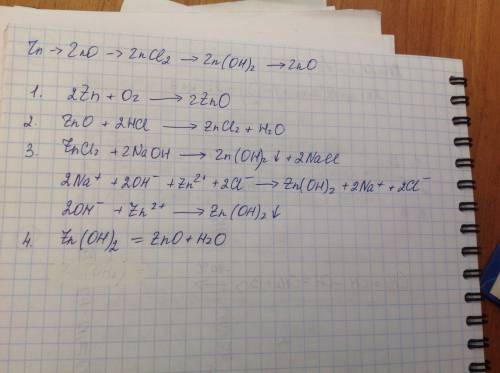 Zn → ZnO → ZnCl₂ → Zn(OH)₂ → ZnO
1. 2Zn + O₂ → 2ZnO
2. ZnO + 2HCl → ZnCl₂ + H₂O
3. ZnCl₂ + 2NaOH → Zn(OH)₂↓ + 2NaCl
2Na⁺ + 2OH⁻ + Zn²⁺ + 2Cl⁻ → Zn(OH)₂ + 2Na⁺ + 2Cl⁻
2OH⁻ + Zn²⁺ → Zn(OH)₂↓
4. Zn(OH)₂ = ZnO + H₂O